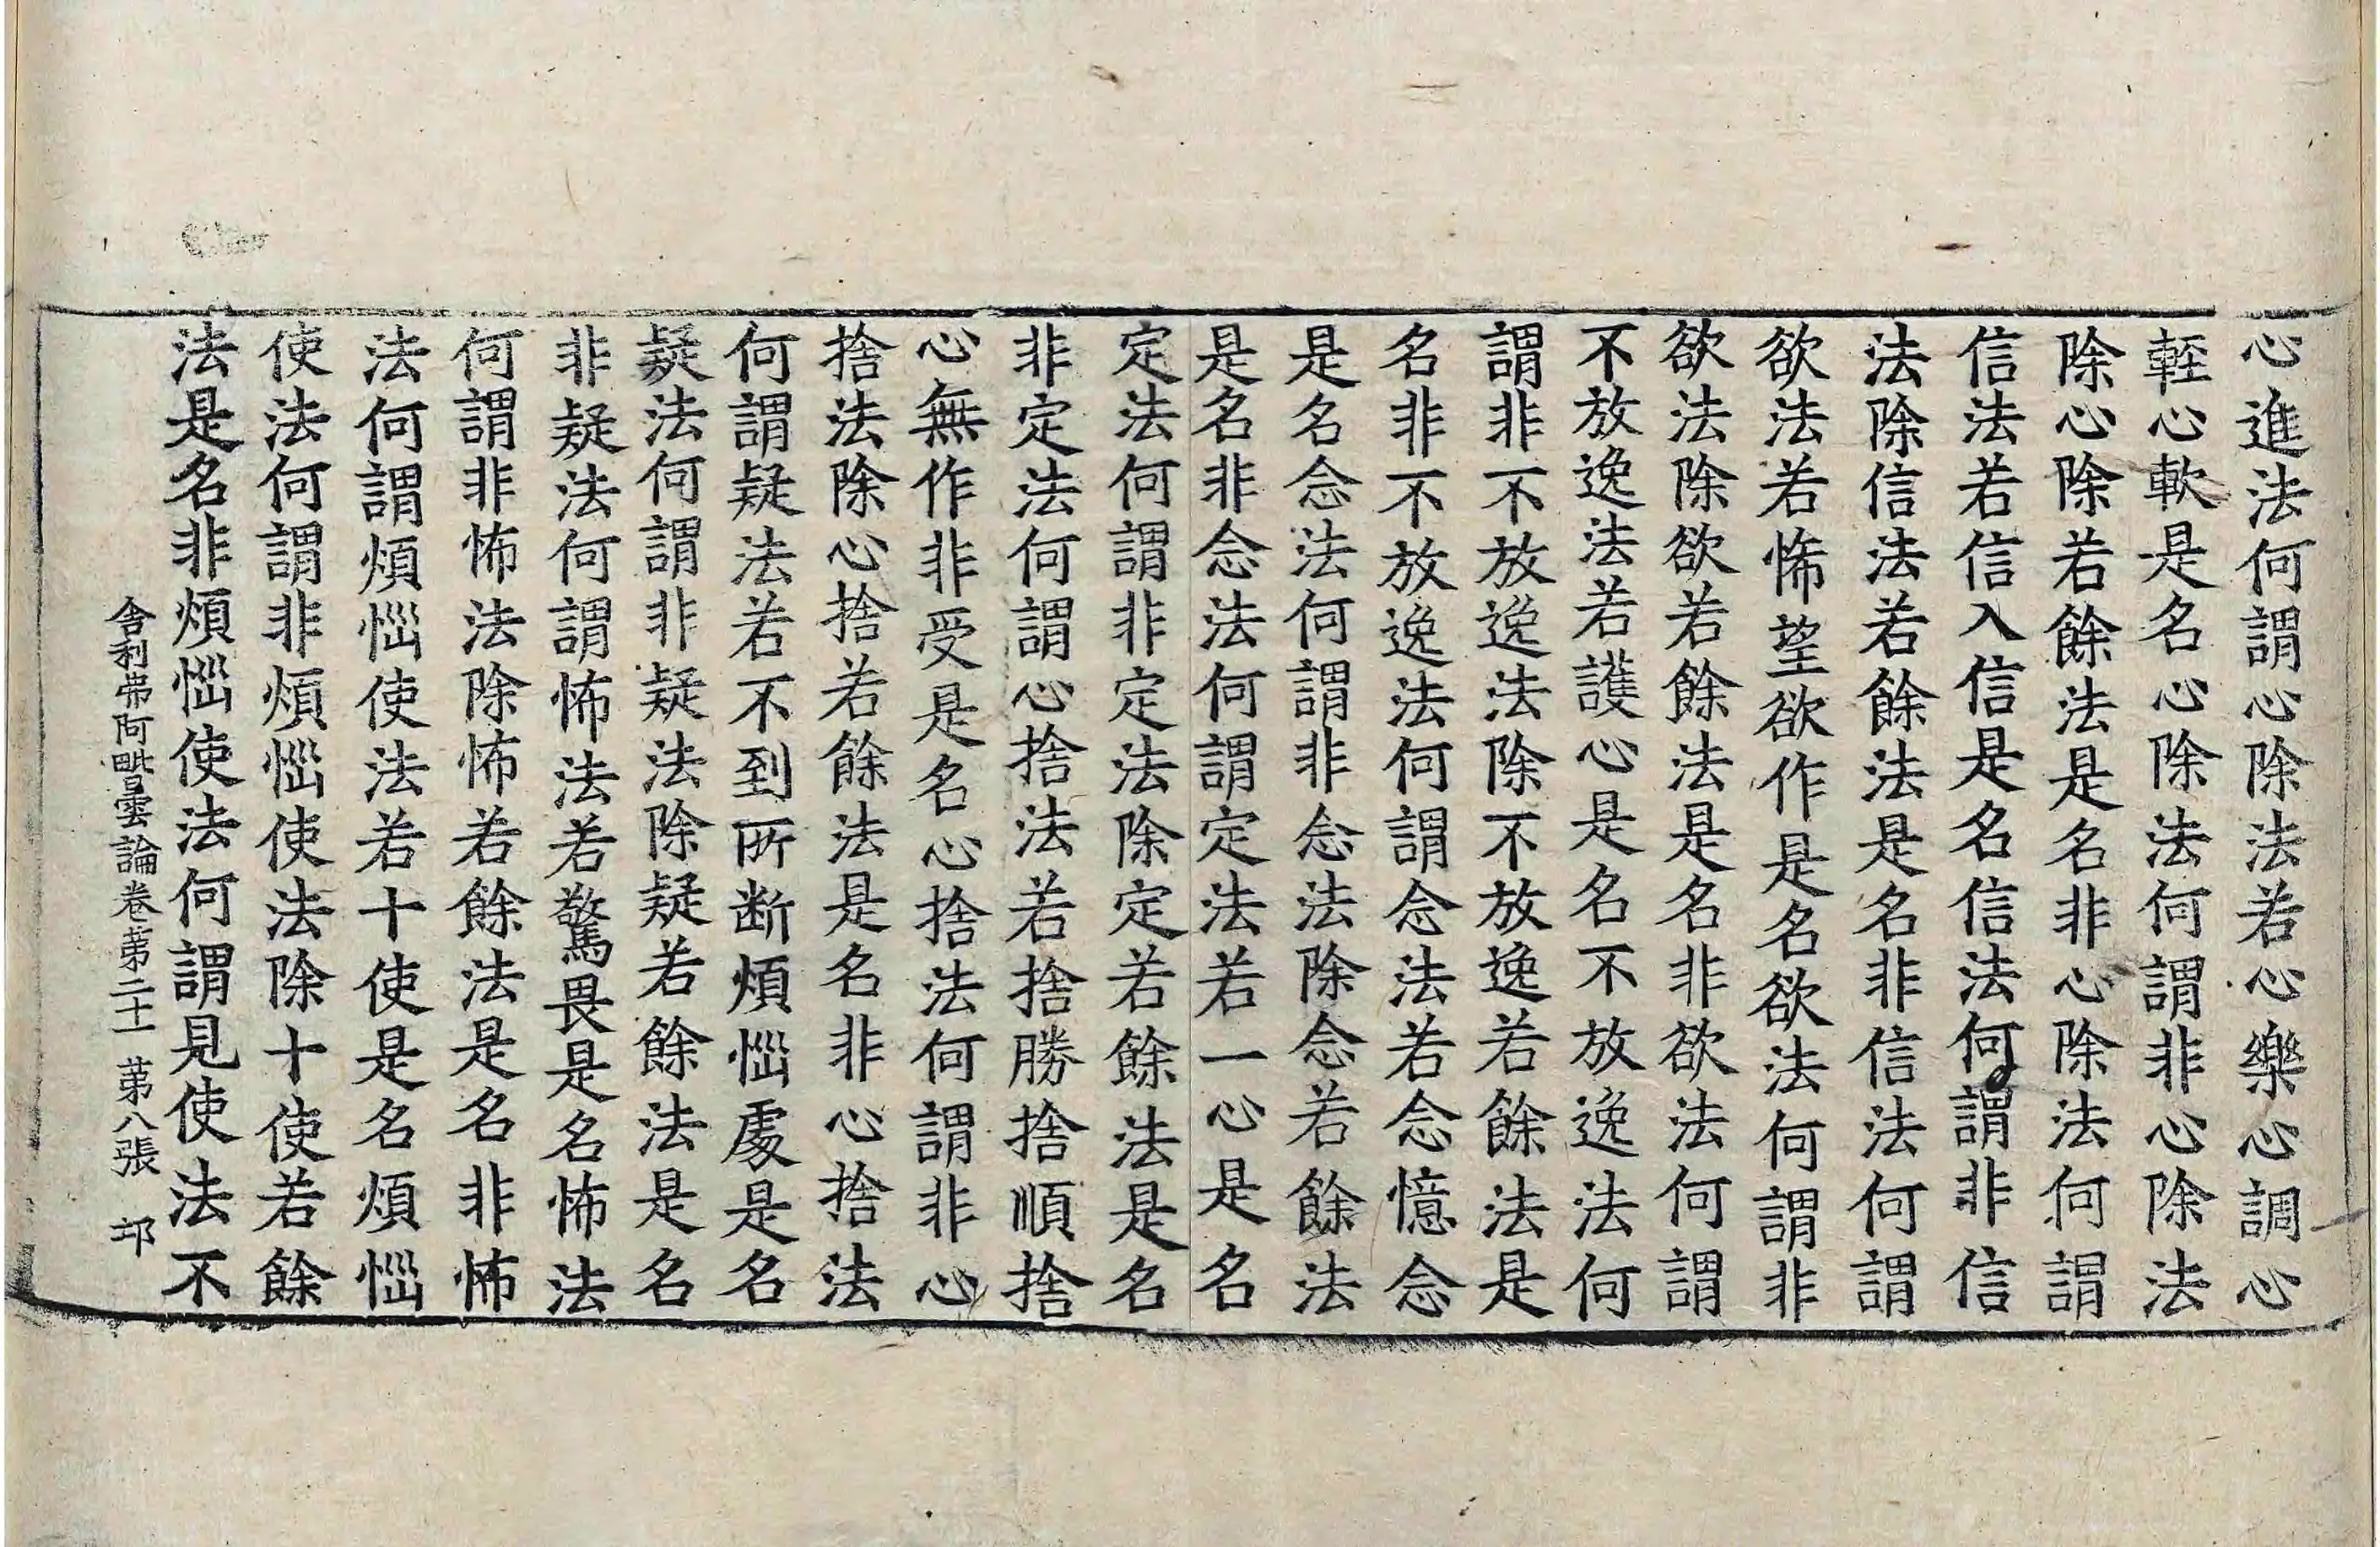 心進法何謂心除法若心樂心調心
輊心軟是名心除法何謂非心除法
除心除若餘法是名非心除法何謂
信法若信入信是名信法何謂非信
法除信法若餘法是名非信法何謂
欲法若悕望欲作是名欲法何謂非
欲法除欲若餘法是名非欲法何謂
不放逸法若護心是名不放逸法何
謂非不放逸法除不放逸若餘法是
名非不放逸法何謂念法若念憶念
是名念法何謂非念法除念若餘法
是名非念法何謂定法若一心是名
定法何謂非定法除定若餘法是名
非定法何謂心捨法若捨勝捨順捨
心無作非受是名心捨法何謂非心
捨法除心捨若餘法是名非心捨法
何謂疑法若不到所断煩惱處是名
疑法何謂非疑法除疑若餘法是名
非疑法何謂怖法若驚畏是名怖法
何謂非怖法除怖若餘法是名非怖
法何謂煩惱使法若十使是名煩惱
使法何謂非煩惱使法除十使若餘
法是名非煩惱使法何謂見使法不
舍利弗阿毗曇論卷苐二十一 苐八張 邙